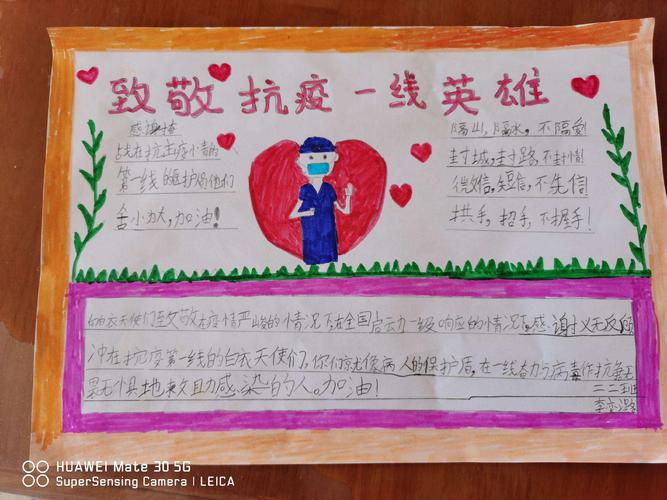 致敬抗疫一线英雄
感谢
战在抗击疫情的
第一线的医护
舍小为大,加油!
隔山,隔水,不隔爱
封城,封路,不封情
微信,短信,不失信
拱手,招手,不握手!
白衣天使们致敬在疫情严峻的情况下,在全国启动一级响应的情况下,感谢义无反顾
冲在抗疫第一线的白衣天使们,你们就像病人的保护盾,在一线奋力与病毒作抗争无
畏无惧地来救助感染的人。加油!
二二班
李
HUAWEI Mate 30 5G
SuperSensing Camera | LEICA